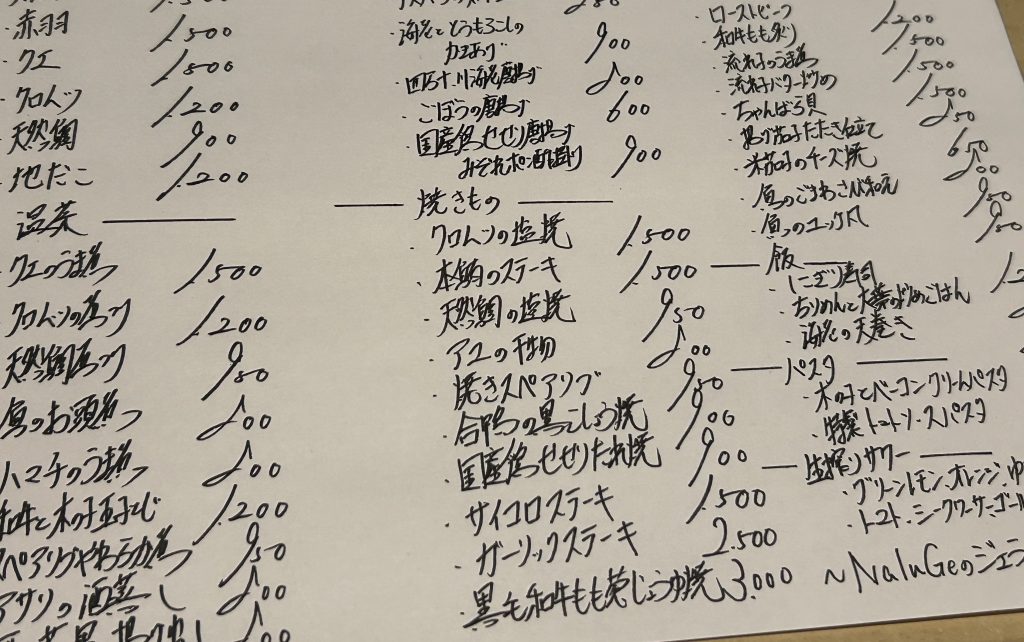 ・赤羽 1.500
・クエ 1.500
・クロムツ 1.200
・天然鯛 900
・地だこ 1.200
温菜
・クエのうま煮 1.500
・クロムツの煮つけ 1.200
天然鯛煮つけ 950
魚のお頭煮つ 800
ハマチのうま煮 800
和牛と木の子玉子とじ 1.200
スペアリブやわらか煮 950
アサリの酒蒸し 800
・海老ととうもろこしの
かきあげ 900
・四万十川海老唐揚げ 800
・ごぼうの唐揚げ 600
・国産鶏せせり唐揚げ
みぞれポン酢掛け 900
焼きもの
・クロムツの塩焼 1.500
・本鮪のステーキ 1.500
・天然鯛の塩焼 950
・アユの干物 800
・焼きスペアリブ 950
・合鴨の黒こしょう焼 900
・国産鶏せせりたれ焼 900
・サイコロステーキ 1.500
・ガーリックステーキ 2.500
・黒毛和牛もも葱じょうゆ焼 3.000
・ローストビーフ 1.200
・和牛もも炙り 1.500
・流れ子のうま煮 1.500
・流れ子バターいため 1.500
・ちゃんばら貝 850
・揚げ茄子たたき仕立て 650
・米茄子のチーズ焼 800
・魚のごまわさび和え 950
・魚のユッケ風 950
飯
・にぎり寿司
・ちりめんと大葉の
ごはん
・海老の天巻き
パスタ
・木の子とベーコンクリームパスタ
・特製トマトソースパスタ
生搾りサワー
・グリーンレモン、オレンジ、ゆ
・トマト、シークワーサー、ゴール
～NaluGeのジェラ